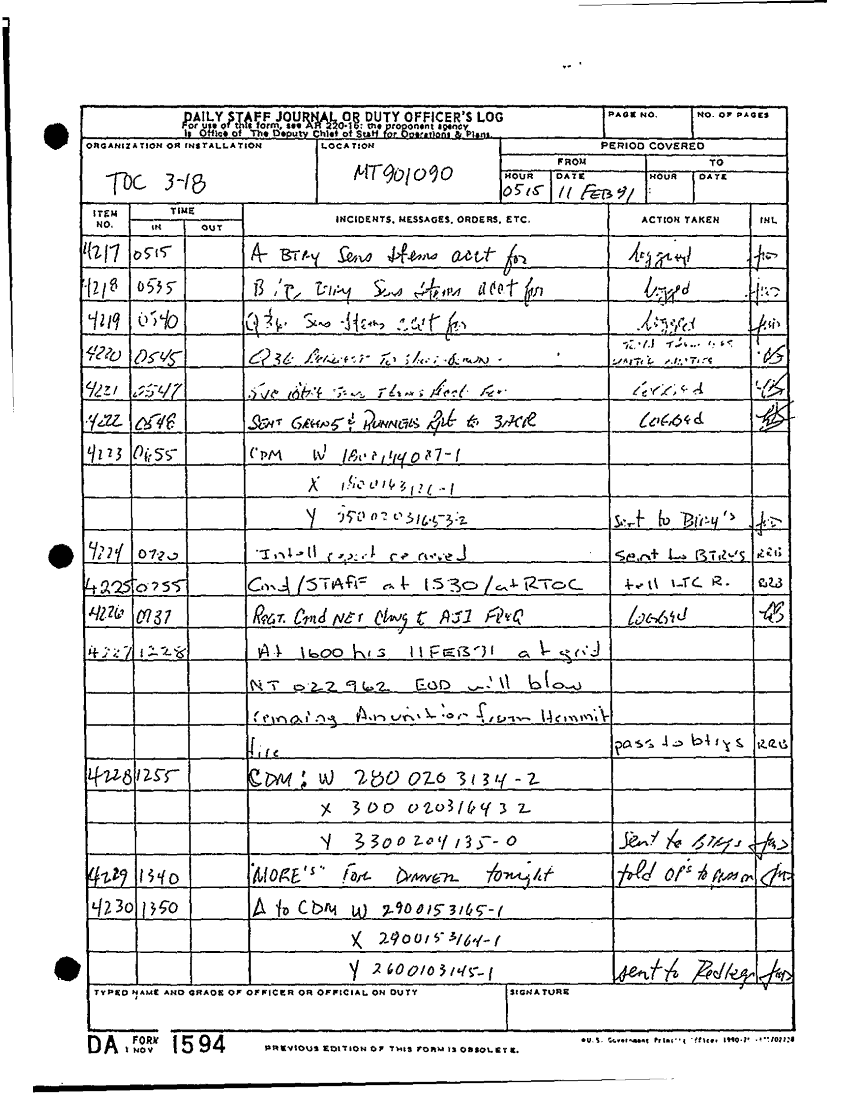 DAILY STAFF JOURNAL OR DUTY OFFICER'S LOG
For use of this form, see AR 220-15; the proponent agency
is Office of The Deputy Chief of Staff for Operations & Plans.
PAGE NO.
NO. OF PAGES
ORGANIZATION OR INSTALLATION
TOC 3-18
LOCATION
MT901090
PERIOD COVERED
FROM
TO
HOUR
0515
DATE
11 FEB 91
HOUR
DATE
ITEM NO.
TIME
IN
OUT
INCIDENTS, MESSAGES, ORDERS, ETC.
ACTION TAKEN
INL
4217 0515 A BTRY Sens Items acct for logged
4218 0535 B Sens Items acct for logged
4219 0540 Q36 Sens Items acct for logged
4220 0545 Q36
4221 0547 Sens Items Acct For logged
4222 0548 SENT GREENS & RUNNERS Rpt to 3ACR LOGGED
4223 0655 CDM W
X
Y sent to Btry's
4224 0720 Intell report received sent to BTRYS RRB
4225 0755 Cmd/STAFF at 1530/at RTOC tell LTC R. RRB
4226 0737 REGT. Cmd NET Chng t LOGGED
4227 1228 At 1600 hrs 11 FEB 91 at grid
NT 022962 EOD will blow
remaing Amunition from Hemmit
fire pass to btrys RRB
4228 1255 CDM: W 280 020 3134-2
X 300 0203164 3 2
Y 3300204135-0 sent to BTRYS
4229 1340 "MORE'S" FOR DINNER tonight told OP's to pass on
4230 1350 Δ to CDM W 2900153165-1
X 2900153164-1
Y 2600103145-1 sent to Redlegs
TYPED NAME AND GRADE OF OFFICER OR OFFICIAL ON DUTY
SIGNATURE
DA FORM 1 NOV 1594
PREVIOUS EDITION OF THIS FORM IS OBSOLETE.